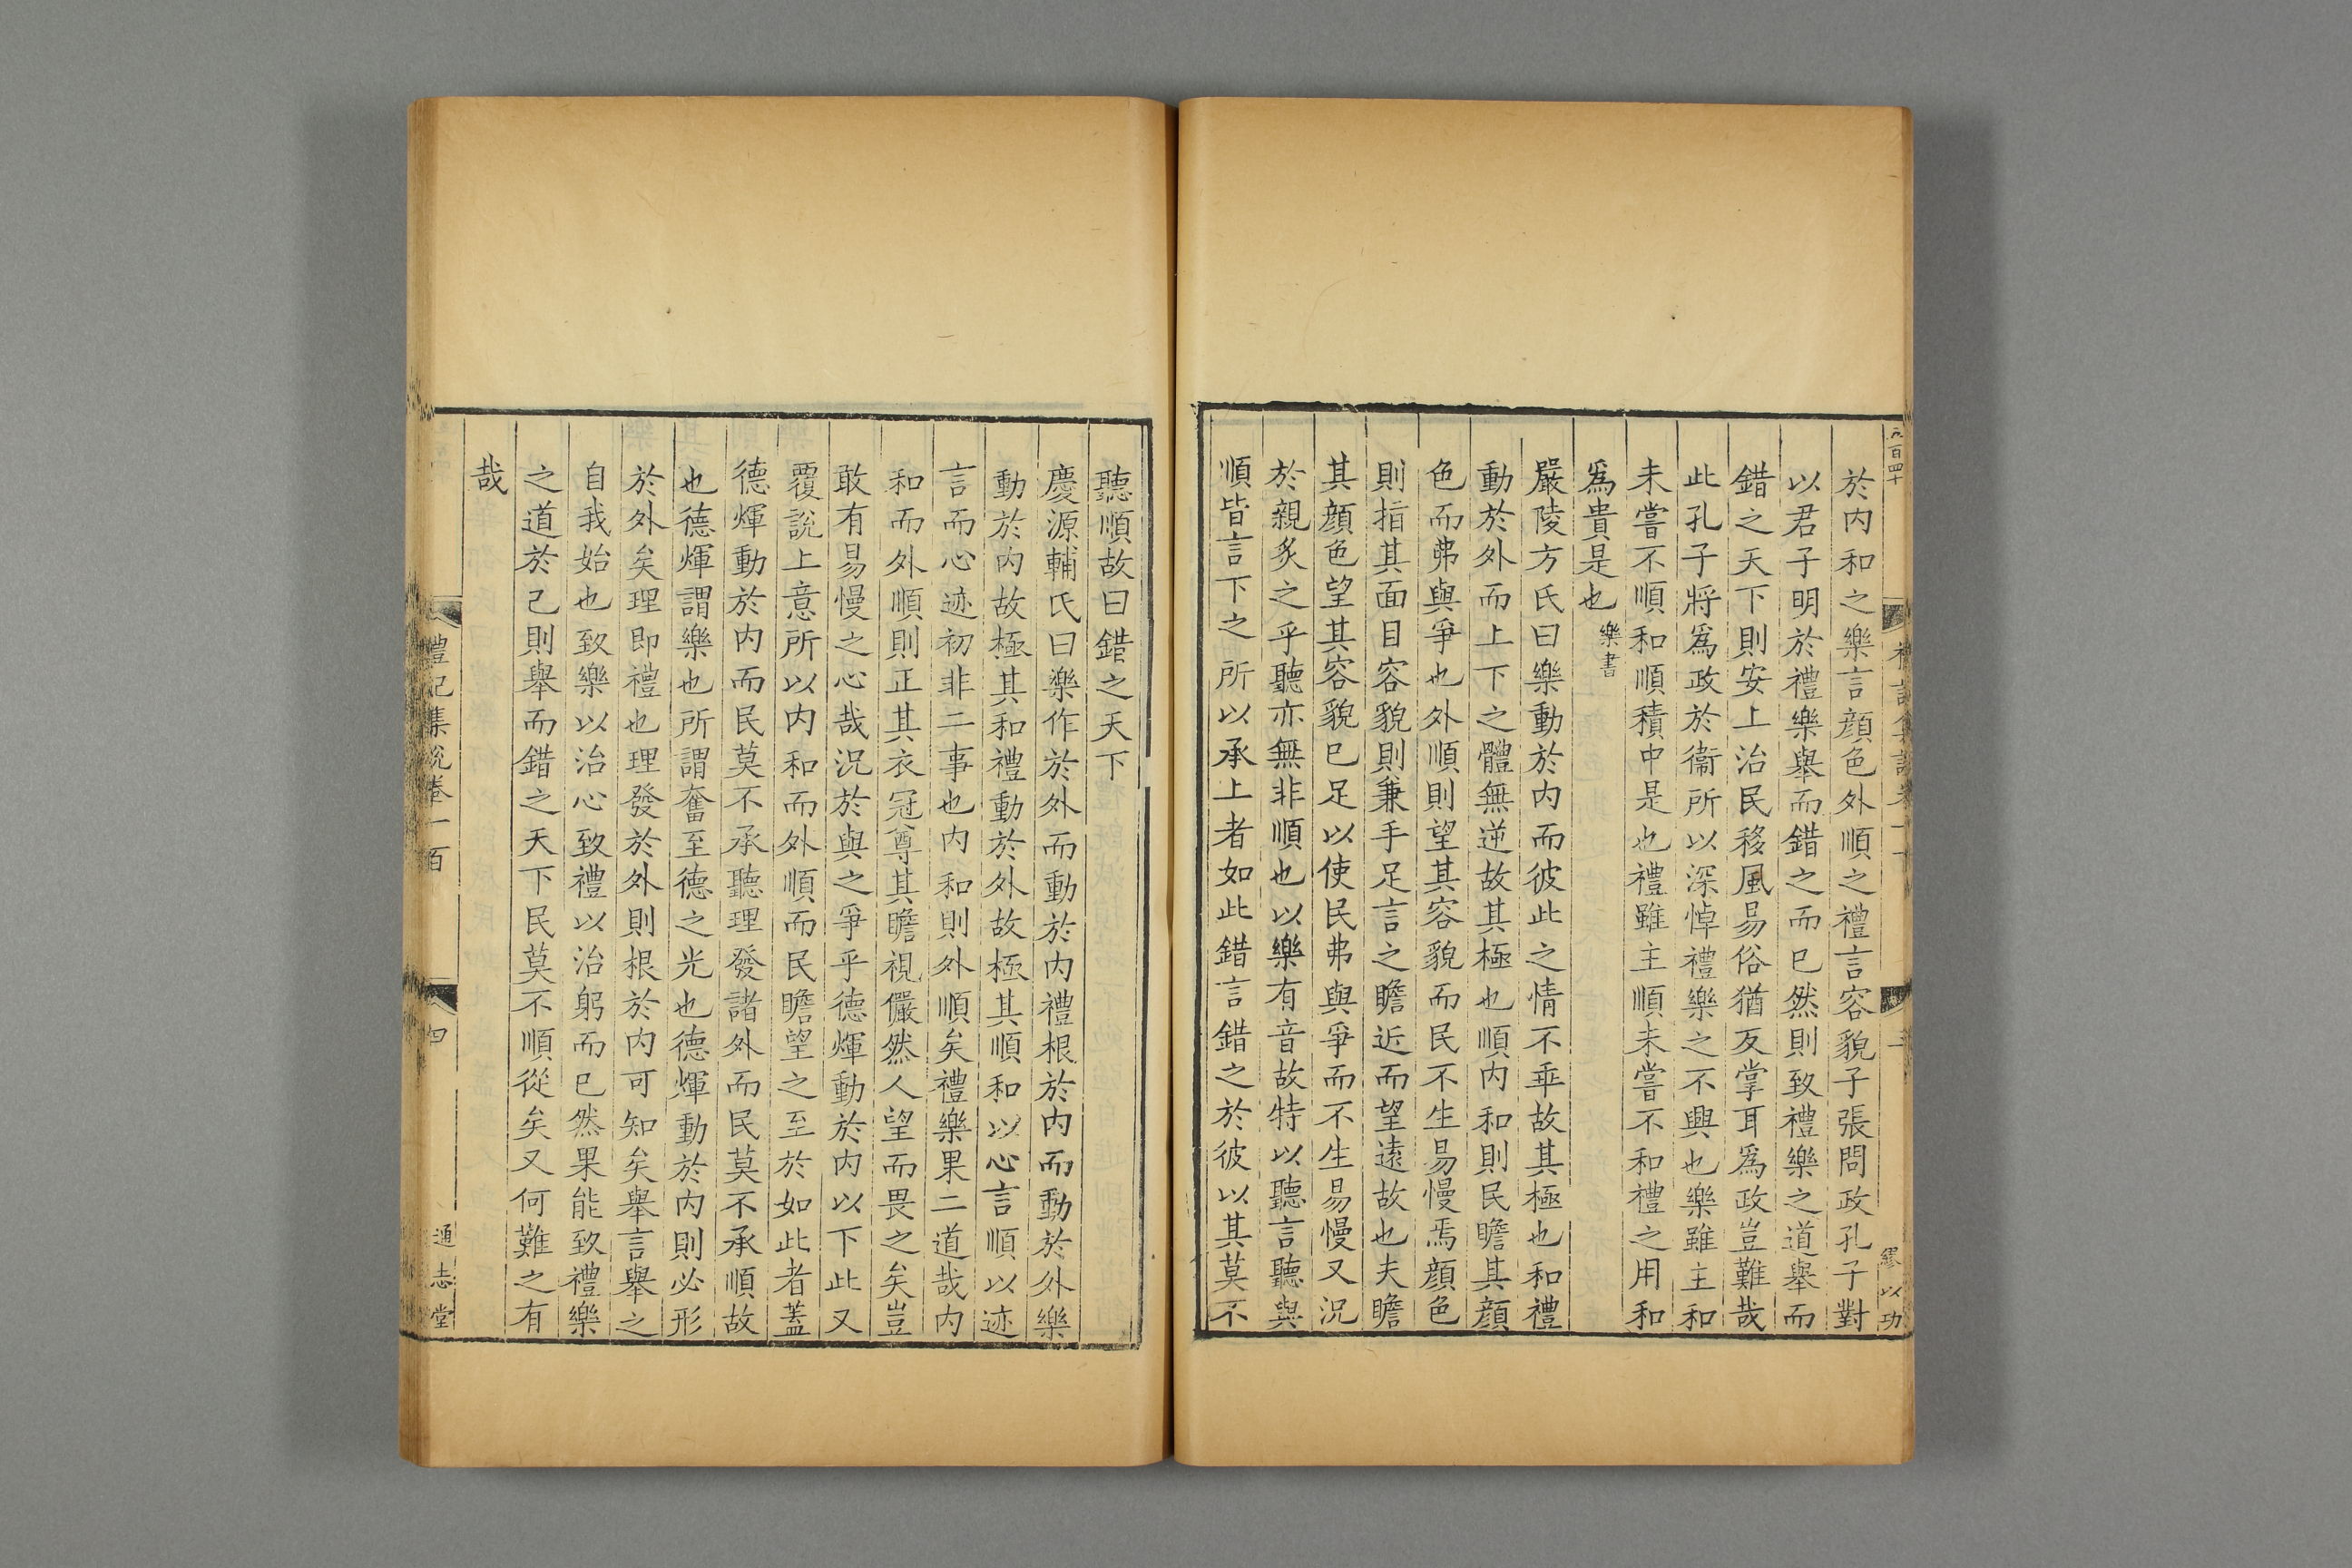 於内和之樂言顔色外順之禮言容貌子張問政孔子對
以君子明於禮樂舉而錯之而已然則致禮樂之道舉而
錯之天下則安上治民移風易俗猶反掌耳爲政豈難哉
此孔子將爲政於衞所以深悼禮樂之不興也樂雖主和
未嘗不順和順積中是也禮雖主順未嘗不和禮之用和
爲貴是也樂書
嚴陵方氏曰樂動於内而彼此之情不乖故其極也和禮
動於外而上下之體無逆故其極也順内和則民瞻其顔
色而弗與爭也外順則望其容貌而民不生易慢焉顔色
則指其面目容貌則兼手足言之瞻近而望遠故也夫瞻
其顔色望其容貌已足以使民弗與爭而不生易慢又況
於親炙之乎聽亦無非順也以樂有音故特以聽言聽與
順皆言下之所以承上者如此錯言錯之於彼以其莫不
聽順故曰錯之天下
慶源輔氏曰樂作於外而動於内禮根於内而動於外樂
動於内故極其和禮動於外故極其順和以心言順以迹
言而心迹初非二事也内和則外順矣禮樂果二道哉内
和而外順則正其衣冠尊其瞻視儼然人望而畏之矣豈
敢有易慢之心哉況於與之爭乎德煇動於内以下此又
覆說上意所以内和而外順而民瞻望之至於如此者蓋
德煇動於内而民莫不承聽理發諸外而民莫不承順故
也德煇謂樂也所謂奮至德之光也德煇動於内則必形
於外矣理即禮也理發於外則根於内可知矣舉言舉之
自我始也致樂以治心致禮以治躬而已然果能致禮樂
之道於己則舉而錯之天下民莫不順從矣又何難之有
哉
禮記集說卷一百
四
通志堂